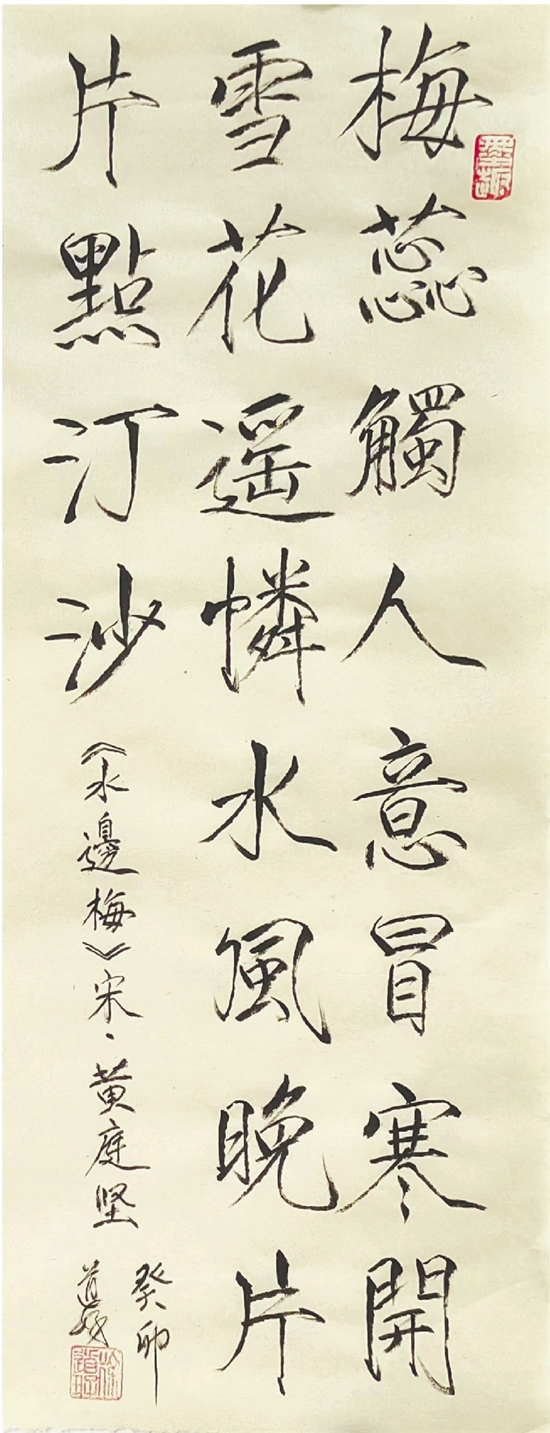 梅蕊觸人意冒寒開
雪花遥憐水風晚片
片點汀沙
《水邊梅》宋、黄庭坚
癸卯